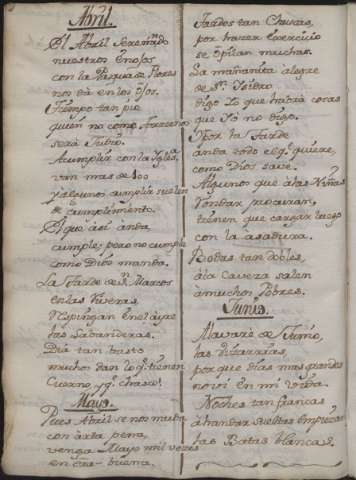 Abril.
El Abril serenado
nuestros enojos
con la Pasqua de Flores
nos dá en los ojos.
Tiempo tan pio
quien no come
será Judio.
A cumplir con la Yglesª
van mas de 100
y algunos cumplir suelen
de cumplimiento.
El que asi anda
cumple, pero no cumple
como Dios manda.
La tarde de Sn. Marcos
en las Riveras,
las Labanderas.
Dia tan basto
muchos dan lo q. tienen
Mayo.
Pues Abril se nos muda
con arta pena,
venga Mayo mil veces
en ora buena.
Tardes tan
por hacer exercicio
se opilan muchas.
La mañanita alegre
de Sn. Isidro
digo Lo que habrá cosas
que Yo no digo.
Por la tarde
anda todo el q. quiere,
como Dios save.
Algunos que á las Niñas
rondar procuran,
tienen que cargar luego
con la asadura.
Bodas tan dobles,
á la caveza salen
á muchos Pobres.
Junio.
de Junio,
las vizarrias,
por que dias mas grandes
no vi en mi vida.
Noches tan francas
á handar sueltas empiezan
las Batas blancas.